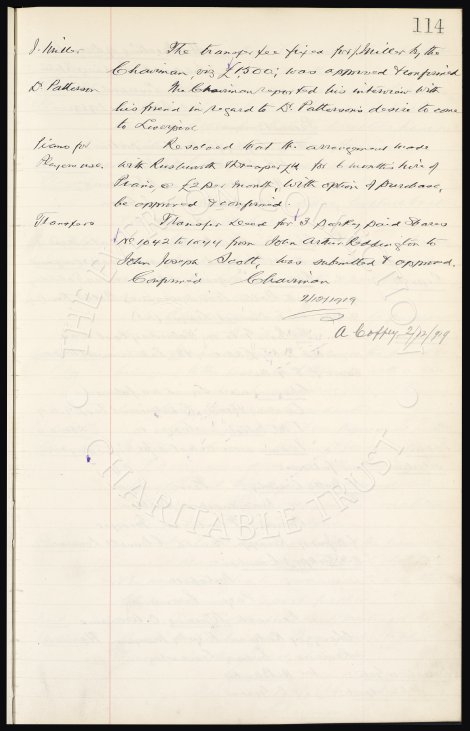 114
J. Miller The transfer fee fixed for J. Miller by the
Chairman, viz £1500; was approved & confirmed
Dr Patterson The Chairman reported his interview with
his friend in regard to Dr Patterson's desire to come
to Liverpool
Piano for Resolved that the arrangement made
Players use. with Rushworth & Draper Ltd for 6 months hire of
Piano @ £2 per month, with option of purchase,
be approved & confirmed.
Transfers Transfer Deed for 3 partly paid Shares
No 1042 to 1044 from John Arthur Reddington to
John Joseph Scott, was submitted & approved.
Confirmed Chairman
2/12/1919
A Coffey 2/12/1919
CHARITABLE TRUST